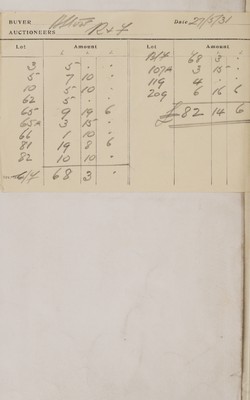 BUYER Date 27/5/31
AUCTIONEERS R & F
Lot Amount
£ s d
3 5 . .
5 7 10 .
10 5 10 .
62 5 . .
65 9 19 6
65A 3 15 .
66 1 10 .
81 19 8 6
82 10 10 .
C/F 68 3 .
Lot Amount
£ s d
B/F 68 3 .
107A 3 15 .
119 4 . .
209 6 16 6
£ 82 14 6